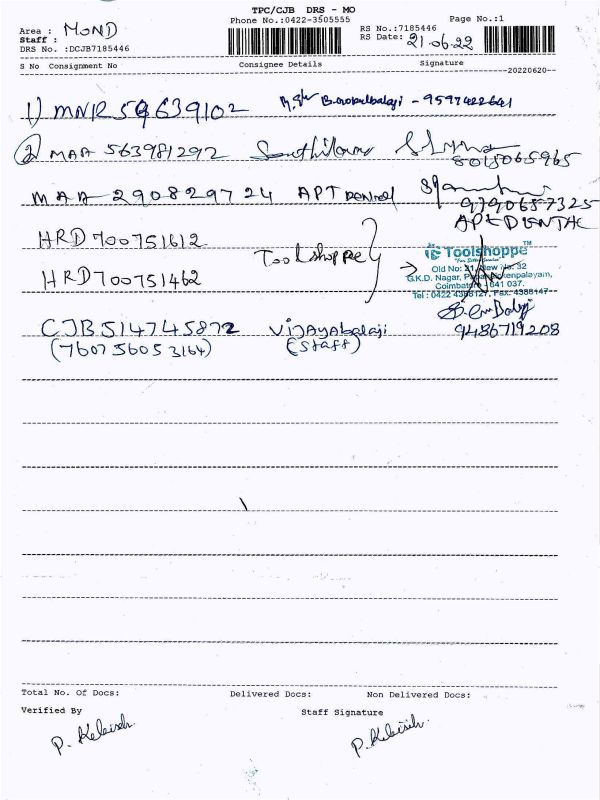 TPC/CJB DRS - MO
Phone No.:0422-3505555 Page No.:1
Area : MOND RS No.:7185446
Staff : RS Date: 21.06.22
DRS No. :DCJB7185446
S No Consignment No Consignee Details Signature
20220620
1) MNR 639102 - 9597422641
2) MAA 563981292 8015065965
MAA 290829724 APT Dental
9790657325
APT DENTAL
HRD 700751612
Toolshoppe
HRD 700751462
Toolshoppe™
Old No: 21, New No: 32
G.K.D. Nagar,
Coimbatore - 641 037.
Tel : 0422 4388127, Fax: 4388147
CJB514745872 Vijayabalaji 9486719208
(760756053164) (Staff)
Total No. Of Docs: Delivered Docs: Non Delivered Docs:
Verified By Staff Signature